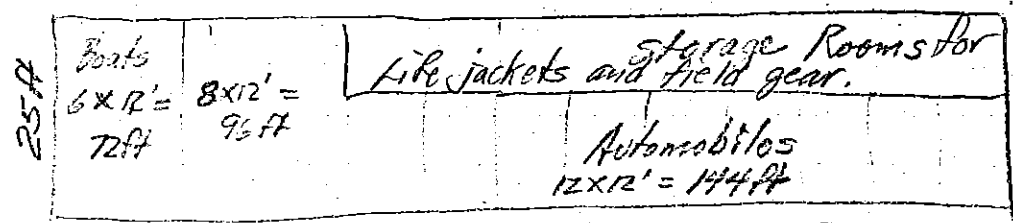 25 ft
Boats
6 x 12' =
72ft
8x12' =
96 ft
Storage Rooms for
Life jackets and field gear.
Automobiles
12x12' = 144 ft